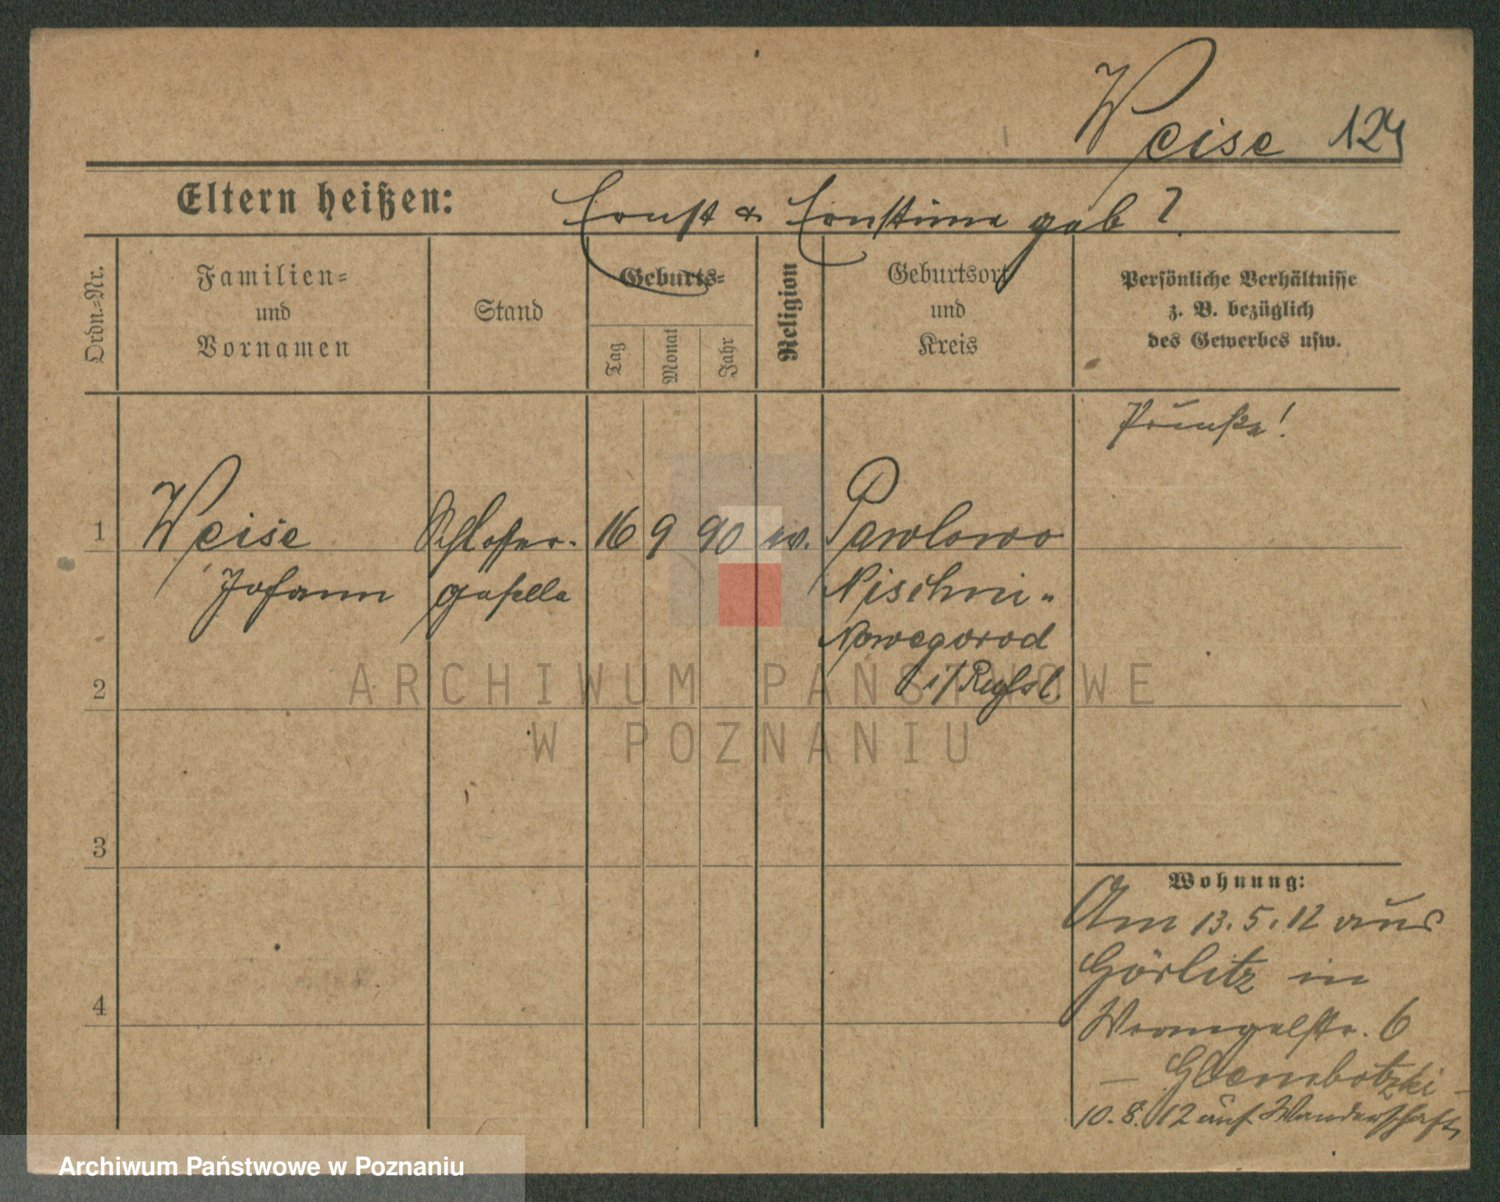 Weise 124
Eltern heißen: Ernst & Ernstine geb ?
Ordn.-Nr.
Familien-
und
Vornamen
Stand
Geburts-
Tag
Monat
Jahr
Religion
Geburtsort
und
Kreis
Persönliche Verhältnisse
z. B. bezüglich
des Gewerbes usw.
Preuße!
1 Weise Schlosser- 16 9 90 ev. Pawlowo
Johann geselle Nischni-
Nowegorod
i/Rußl.
2
3
4
Wohnung:
Am 13.5.12 aus
Görlitz in
Wrangelstr. 6
- Glembotzki -
10.8.12 auf Wanderschaft
ARCHIWUM PAŃSTWOWE
W POZNANIU
Archiwum Państwowe w Poznaniu